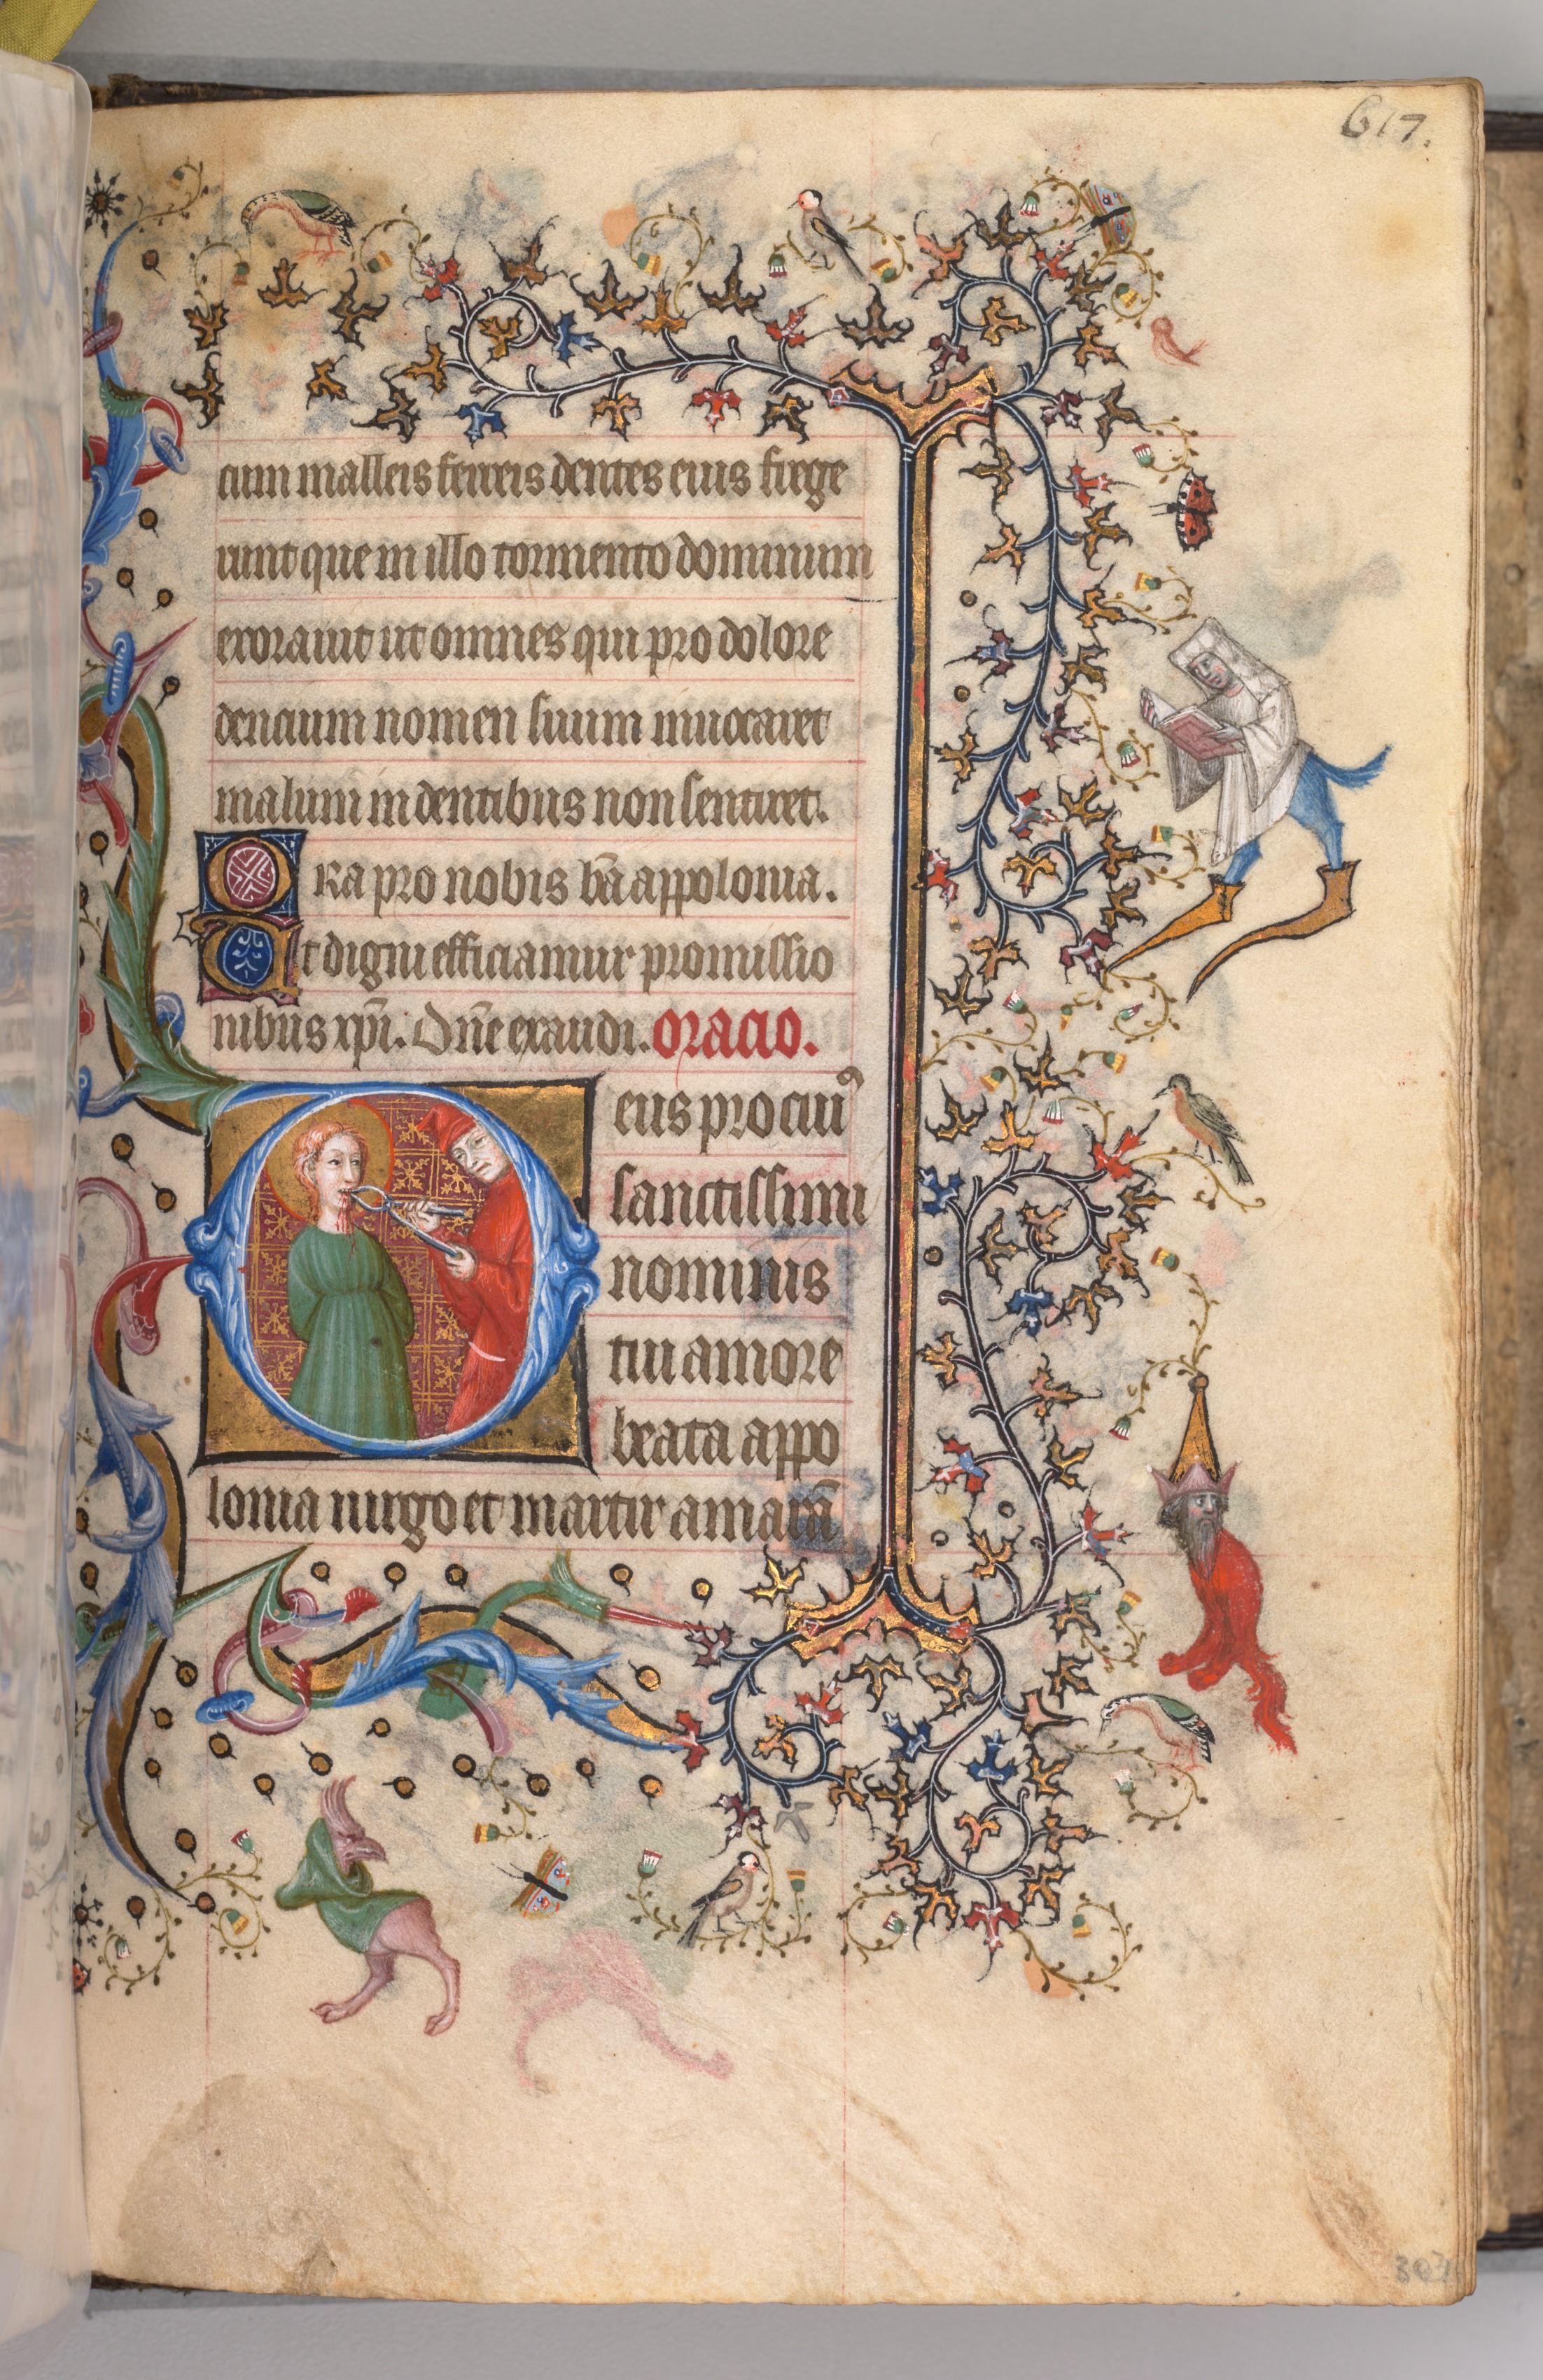 617.
cum malleis ferreis dentes eius frege
runt que in illo tormento dominum
exorauit ut omnes qui pro dolore
dencium nomen suum inuocaret
malum in dentibus non sentiret.
Ora pro nobis bā appolonia.
Et digni efficiamur promissio
nibus xp̄i. Dn̄e exaudi. Oracio.
Deus pro cuiꝰ
sanctissimi
nominis
tui amore
beata appo
lonia uirgo et martir amarā